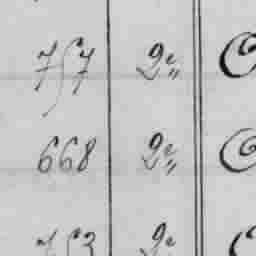 757 2e„
668 2e„
753 2e